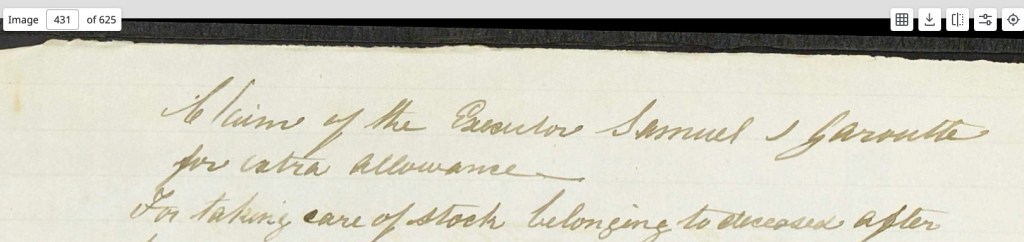 Image 431 of 625
Claim of the Executor Samuel S Garoutte
for extra allowance
For taking care of stock belonging to deceased after